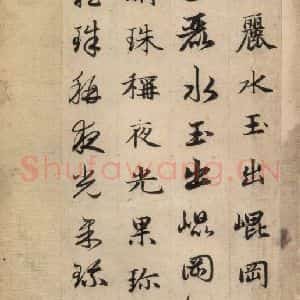 麗水玉出崐岡
麗水玉出崐岡
珠稱夜光果珍
珠稱夜光果珍
Shufawang.CN